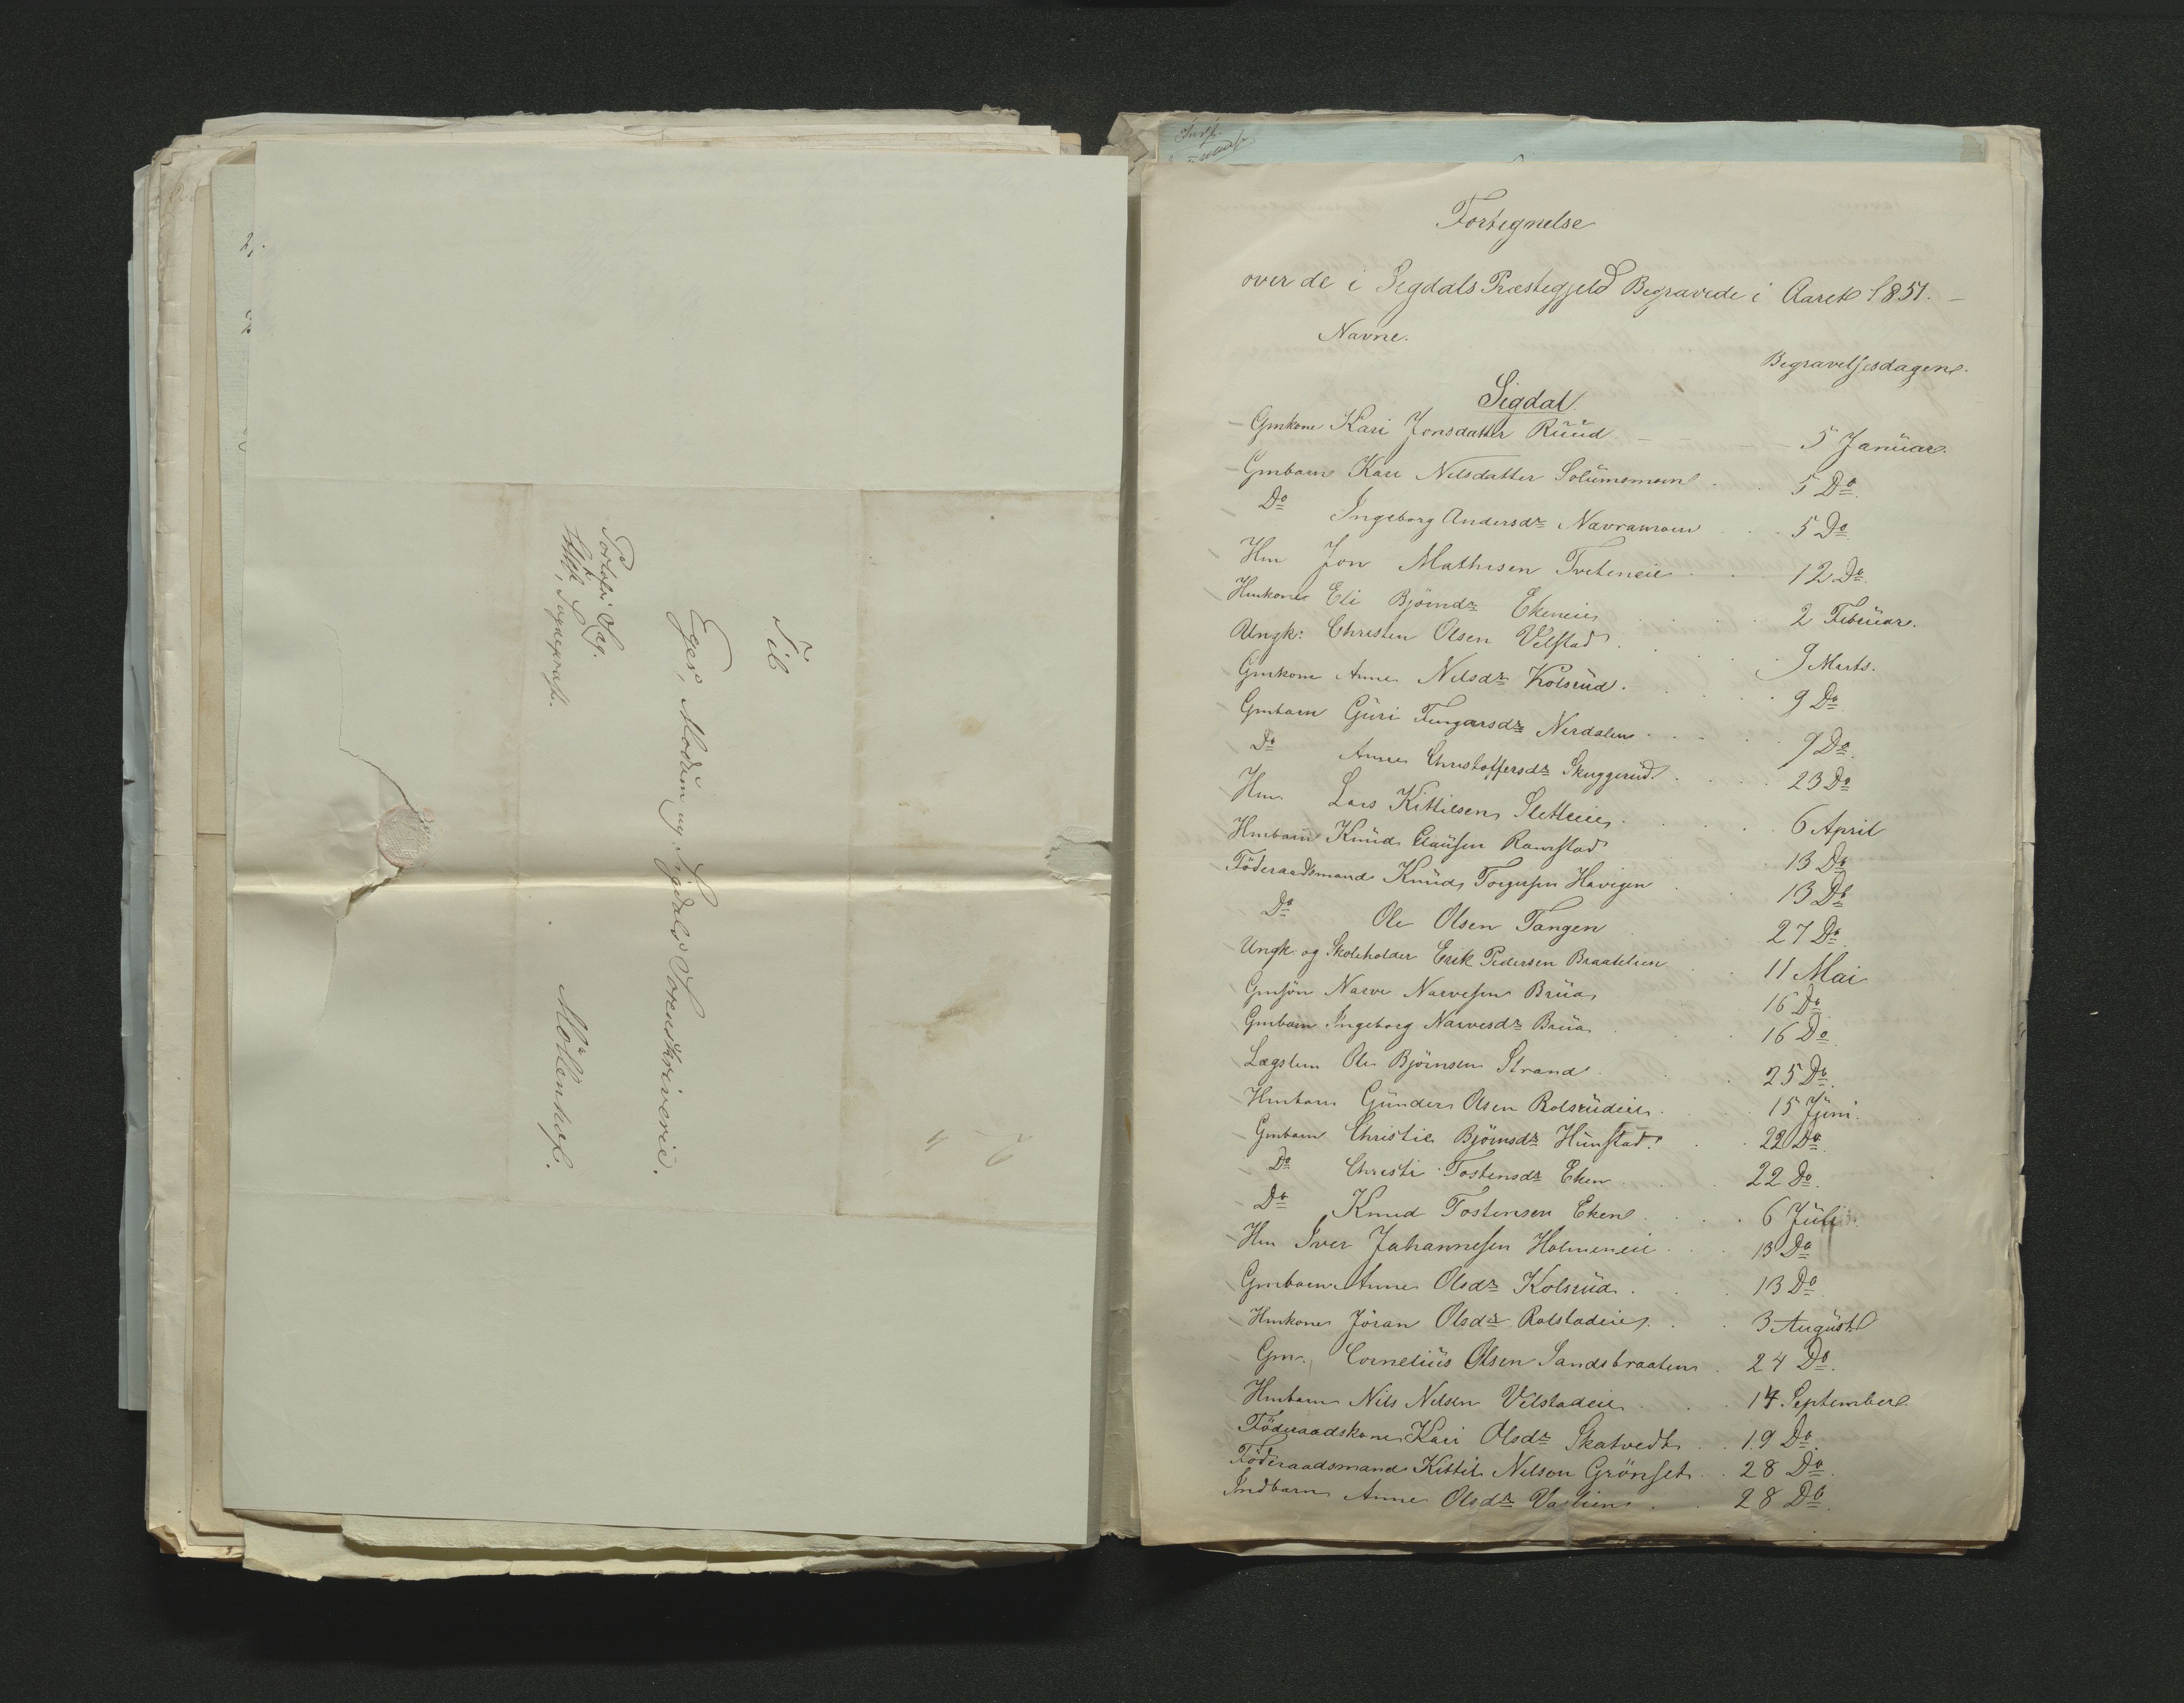 Til
Eger, Modum og Sigdals Sorenskriverie.
Portofri Sag.
Sognepræst.
Möllenhof.
Fortegnelse
over de i Segdals Præstegjeld Begravede i Aaret 1851. –
Navne.
Begravelsesdagene.
Sigdal
Gmkone Kari Jonsdatter Ruud. 5 Januar.
Gmbarn Kari Nilsdatter Solumsmoen 5 Do.
Do Ingeborg Andersdr Navramoen 5 Do
Hm Jon Mathisen Tveteneie 12 Do.
Hmkone Eli Björnsdr Ekeneie 2 Februar.
Ungk: Christen Olsen Velstad 9 Marts.
Gmkone Anne Nilsdr Kolsrud. 9 Do
Gmbarn Guri Tingarsdr Nerdalen 9 Do.
Do Anne Christoffersdr Skuggerud 23 Do
Hm. Lars Kittilsen Sletteeie 6 April
Hmbarn Knud Clausen Ramstad 13 Do
Föderaadsmand Knud Torgersen Havigen 13 Do
Do Ole Olsen Tangen 27 Do.
Ungk. og Skoleholder Erik Pedersen Braatelien 11 Mai
Gmsön Narve Narvesen Brua 16 Do.
Gmbarn Ingeborg Narvesdr Brua 16 Do.
Lægslem Ole Björnsen Strand 25 Do.
Hmbarn Gunder Olsen Rolsrudeie 15 Juni.
Gmbarn Christie Björnsdr Hunstad. 22 Do.
Do Christi Tostensdr Eken 22 Do.
Do Knud Tostensen Eken 6 Juli
Hm Iver Johannesen Holmeneie 13 Do
Gmbarn Anne Olsdr Kolsrud. 13 Do.
Hmkone Jöran Olsdr Rolstadeie 3 August
Gm. Cornelius Olsen Sandsbraaten 24 Do.
Hmbarn Nils Nilsen Velstadeie 14 September.
Föderaadskone Kari Olsdr Skatvedt 19 Do.
Föderaadsmand Kittil Nilsen Grönset 28 Do.
Indbarn Anne Olsdr Vaslien 28 Do.